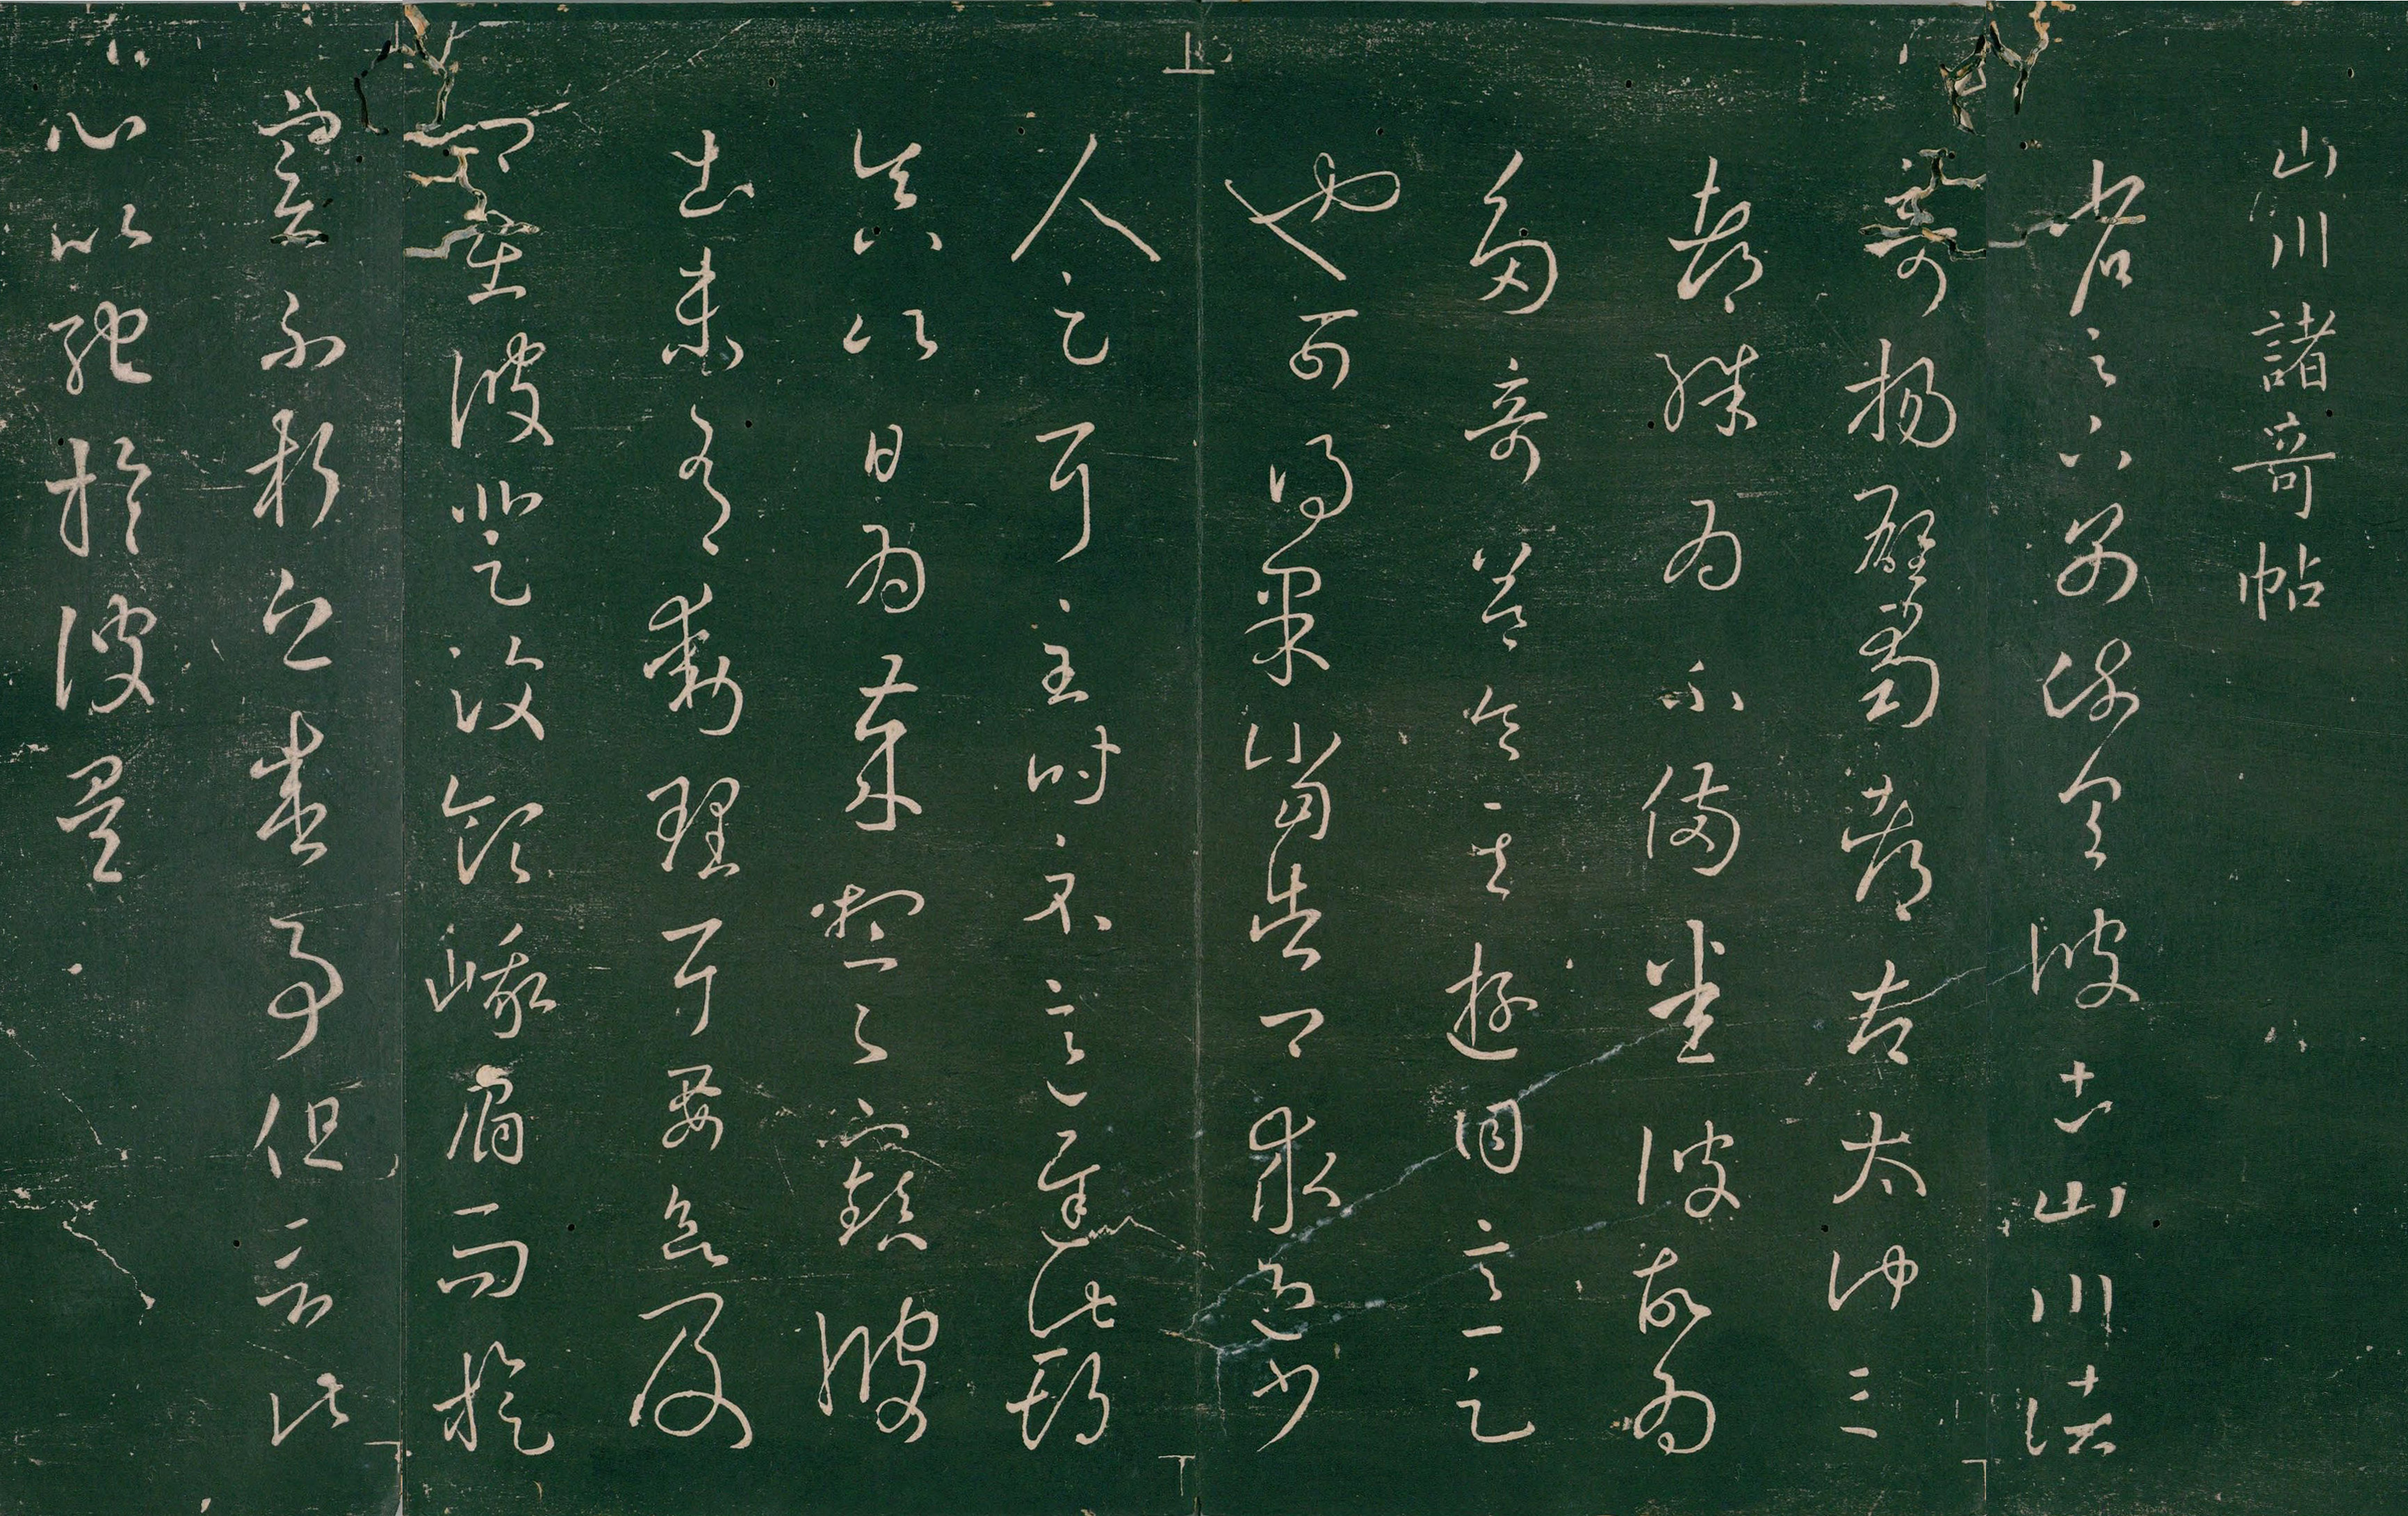 山川諸竒帖
省足下別疏具彼土山川諸
奇揚雄蜀都左太沖三
都殊為不備悉彼故為
多奇益令其遊目意足
也可得果當告卿求迎少
人足耳至時示意遲此期
真以日為歲想足下鎮彼
土未有動理耳要欲及
卿在彼登汶領峨眉而旋
實不朽之盛事但言此
心以馳於彼矣